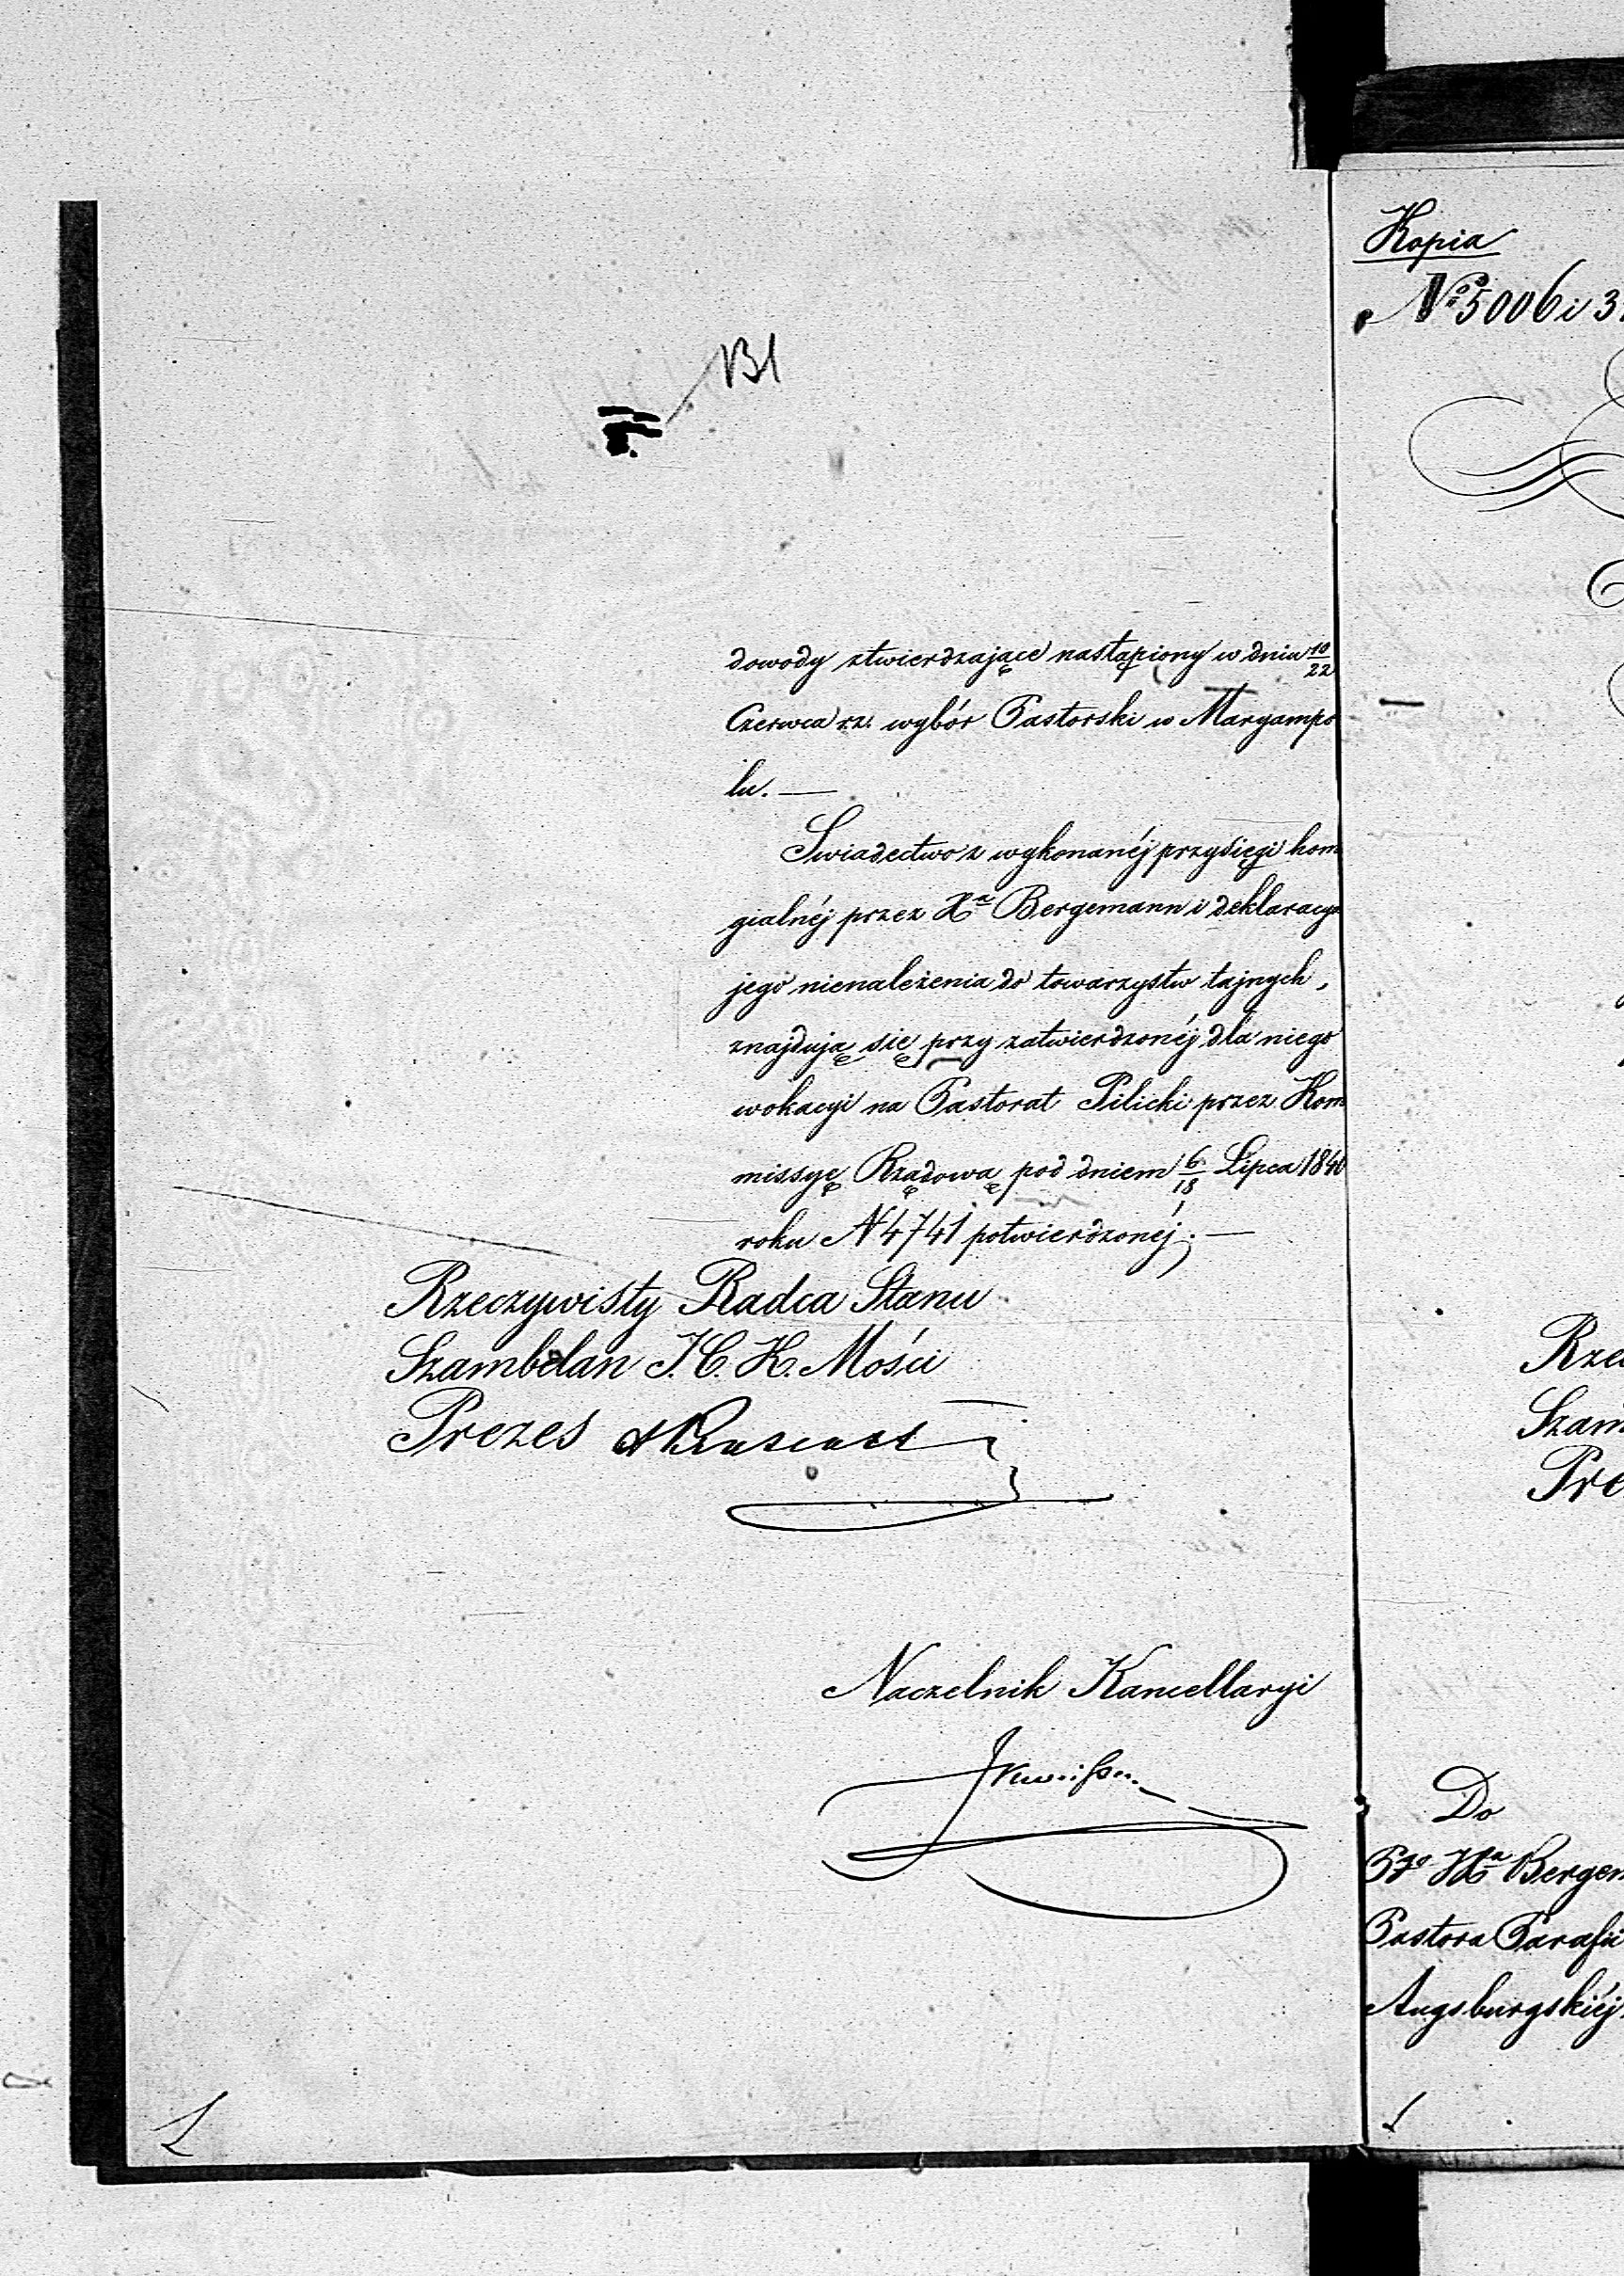 dowody stwierdzające nastąpiony w dniu 10/22
Czerwca r.z. wybór Pastorski w Maryampo
lu. —
Swiadectwo z wykonanéj przysięgi hom
gialnéj przez Xa Bergemann i deklaracya
jego nienależenia do towarzystw tajnych,
znajdują się przy zatwierdzonéj dla niego
wokacyi na Pastorat Pilicki przez Kom
missyę Rządową pod dniem 6/18 Lipca 1840
roku N 4741 potwierdzonéj. —
Rzeczywisty Radca Stanu
Szambelan J. C. K. Mości
Prezes
Naczelnik Kancellaryi
Kopia
No 5006 i 3
Rze
Szam
Pre
Do
Xa Bergem
Pastora Parafii
Augsburgskiéj